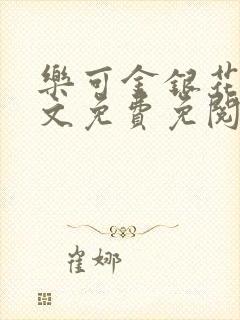 樂可金銀花
文免費免閱
崔娜